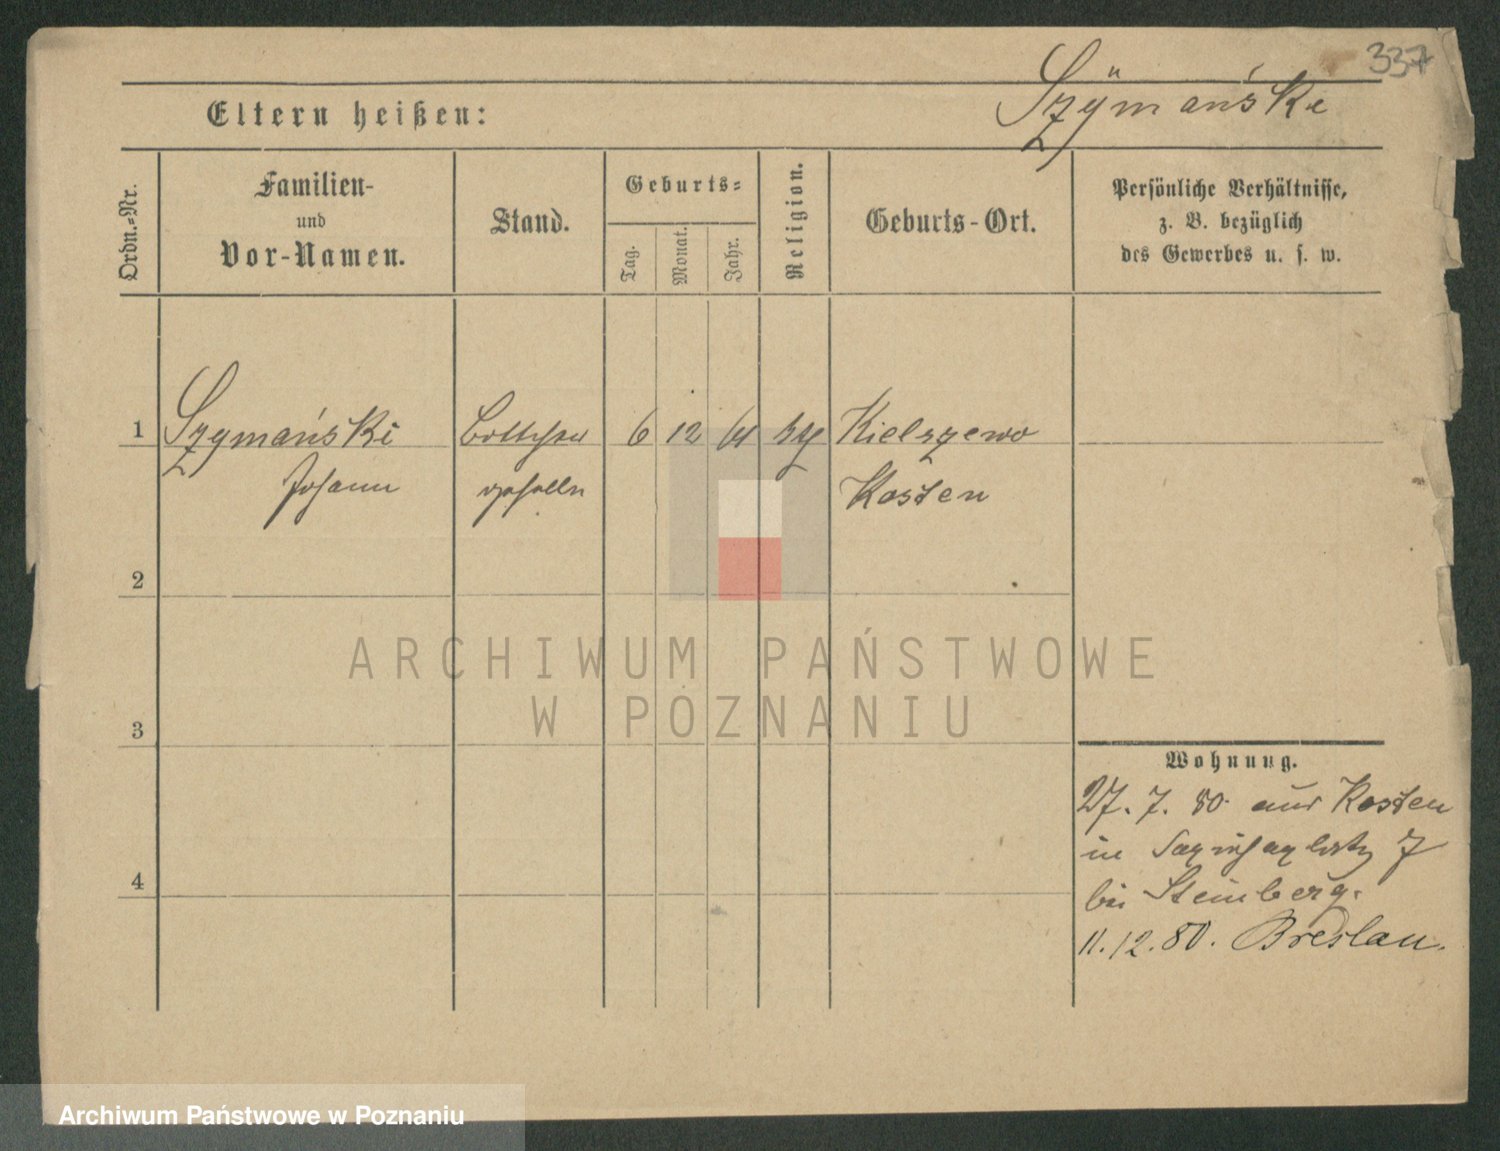 337
Szÿmański
Eltern heißen:
Ordn.-Nr.
Familien-
und
Vor-Namen.
Stand.
Geburts-
Tag.
Monat.
Jahr.
Religion.
Geburts-Ort.
Persönliche Verhältnisse,
z. B. bezüglich
des Gewerbes u. s. w.
1 Szymański Böttcher 6 12 61 Kielszewo
Johann geselle Kosten
2
3
4
Wohnung.
27. 7. 80 aus Kosten
in Sapiehaplatz 7
bei Steinberg.
11. 12. 80. Breslau.
ARCHIWUM PAŃSTWOWE
W POZNANIU
Archiwum Państwowe w Poznaniu